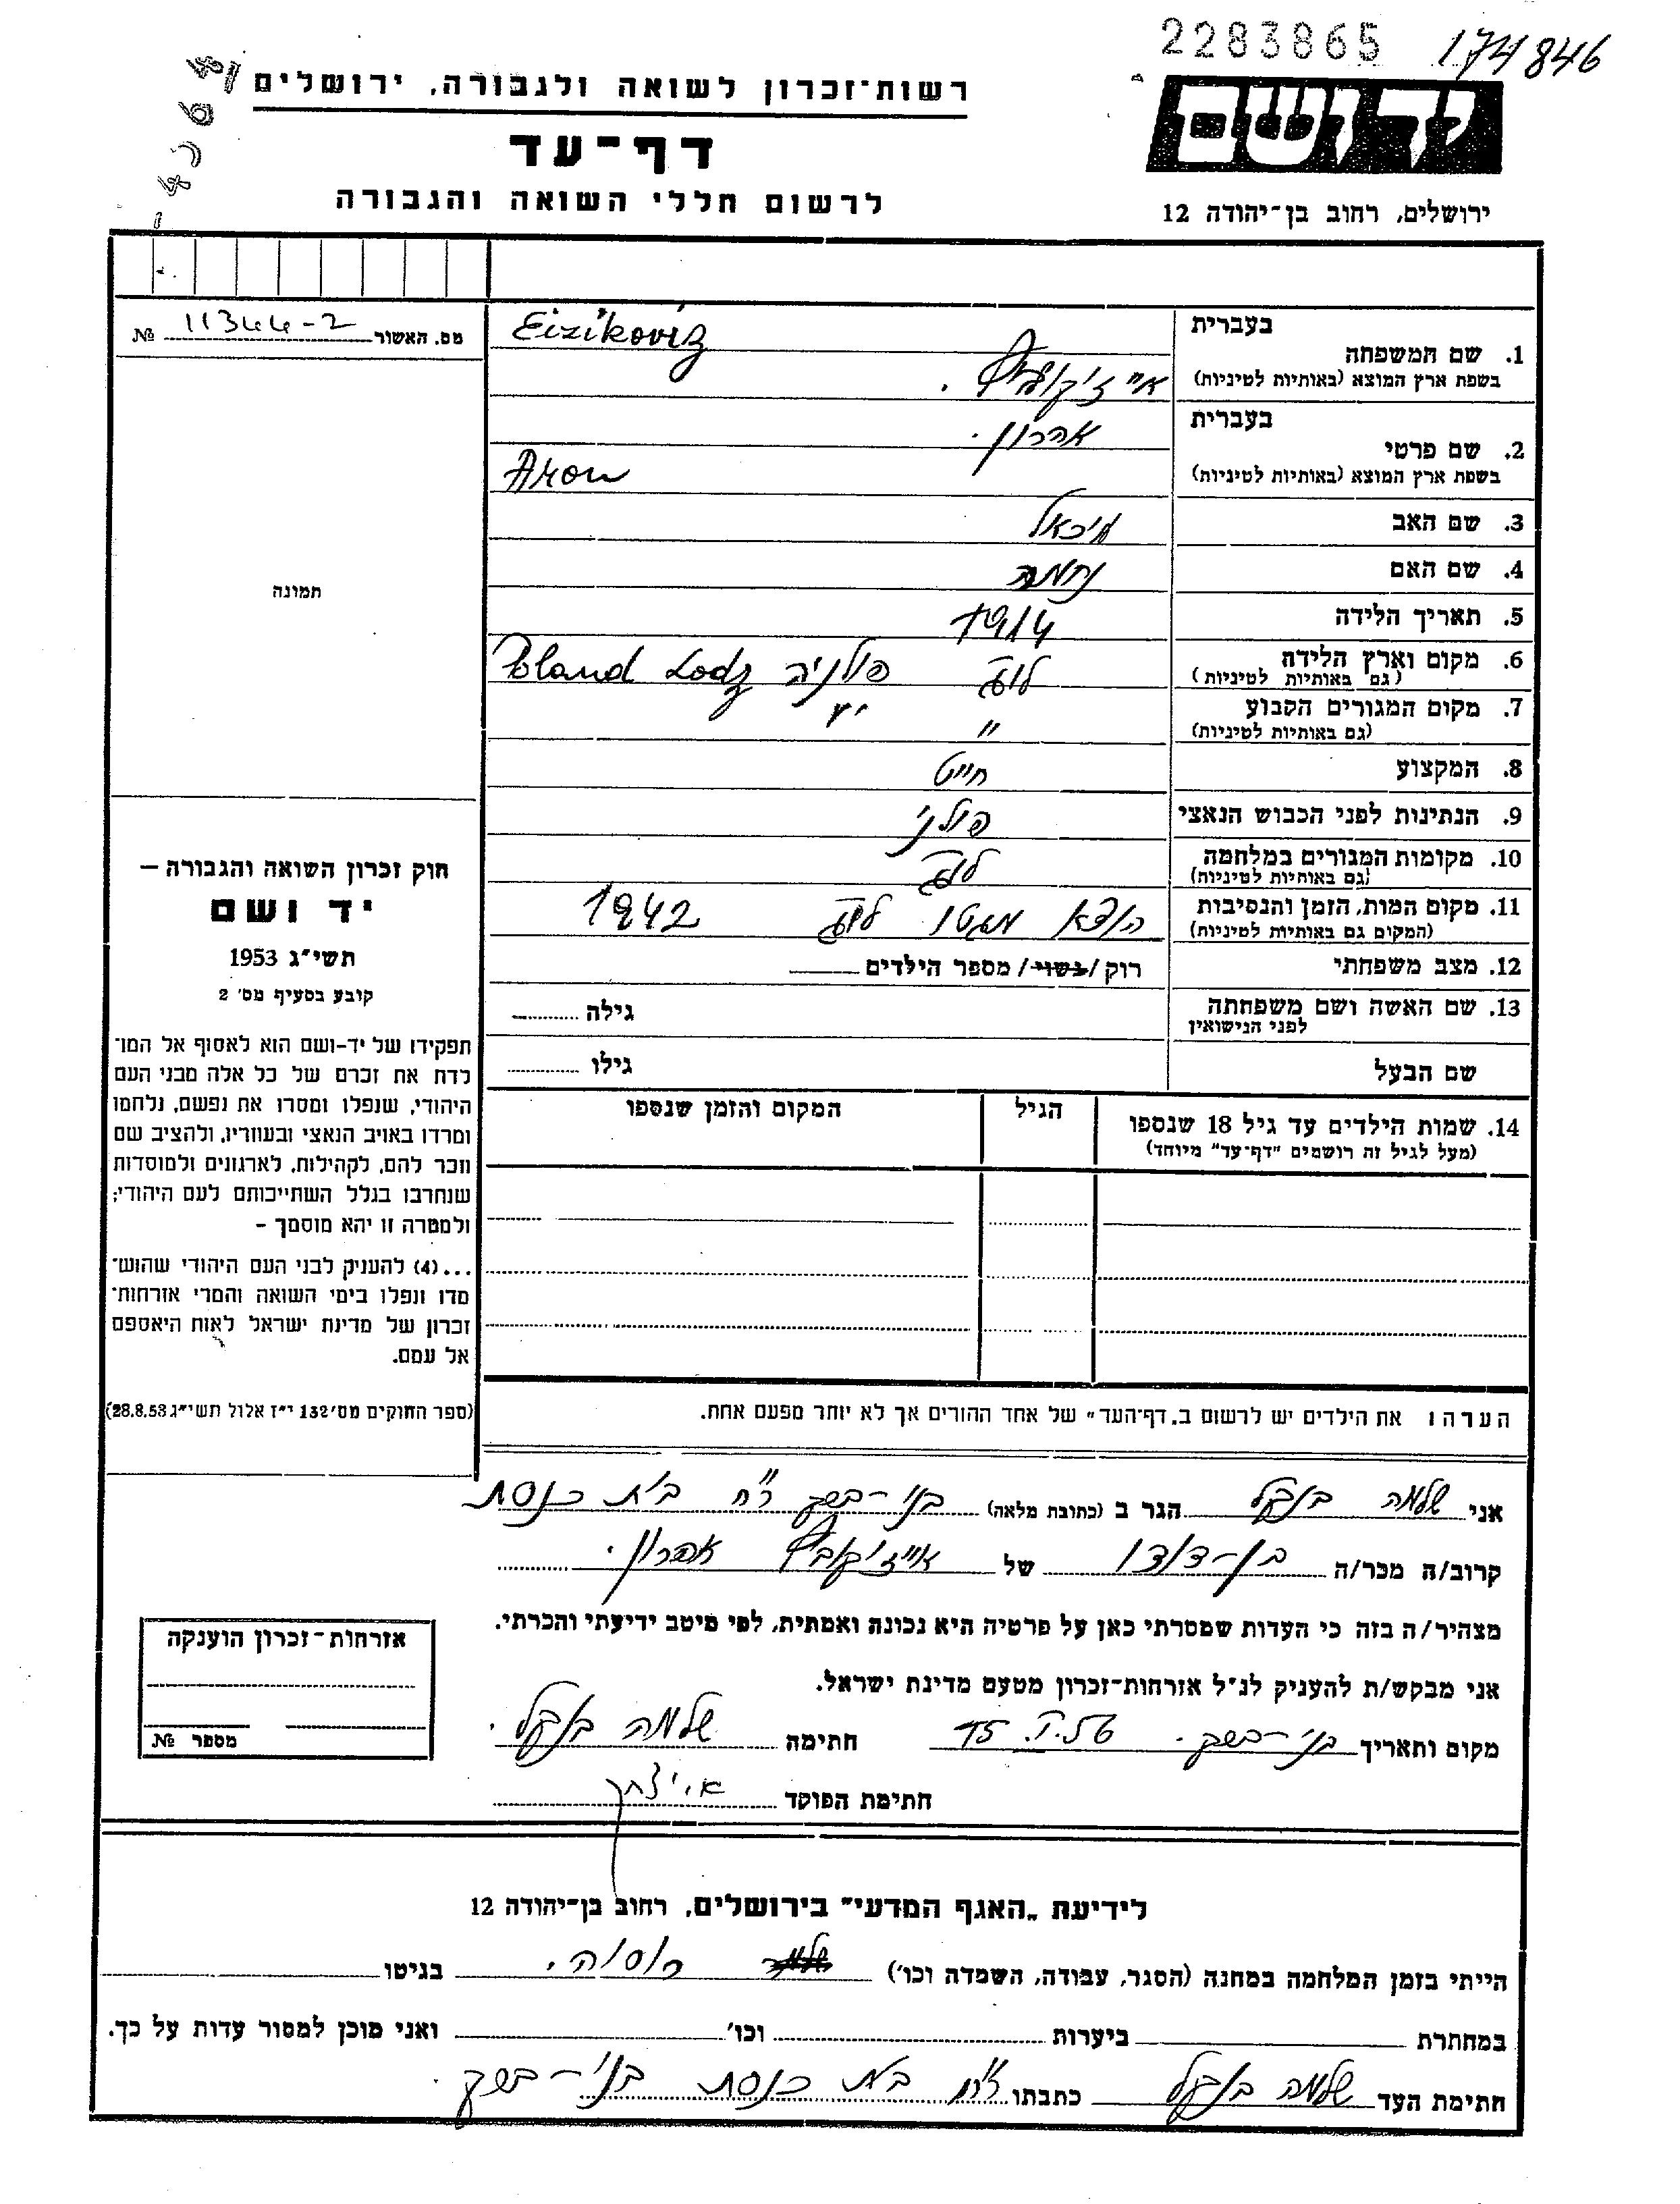 2283865 174846
רשות־זכרון לשואה ולגבורה, ירושלים
יד ושם
דף־עד
לרשום חללי השואה והגבורה
ירושלים, רחוב בן־יהודה 12
מס. האשור 11344-2 №
תמונה
בעברית
1. שם המשפחה Eizikoviz
בשפת ארץ המוצא (באותיות לטיניות)
בעברית אהרון.
2. שם פרטי
בשפת ארץ המוצא (באותיות לטיניות) Aron
3. שם האב מיכאל
4. שם האם נחמה
5. תאריך הלידה 1914
6. מקום וארץ הלידה לודז פולניה Poland Lodz
(גם באותיות לטיניות)
7. מקום המגורים הקבוע
(גם באותיות לטיניות) "
8. המקצוע חייט
9. הנתינות לפני הכבוש הנאצי פולני
10. מקומות המגורים במלחמה לודז
(גם באותיות לטיניות)
11. מקום המות, הזמן והנסיבות הוצא מגטו לודז 1942
(המקום גם באותיות לטיניות)
12. מצב משפחתי רוק / נשוי / מספר הילדים
13. שם האשה ושם משפחתה גילה
לפני הנישואין
שם הבעל גילו
14. שמות הילדים עד גיל 18 שנספו הגיל המקום והזמן שנספו
(מעל לגיל זה רושמים "דף־עד" מיוחד)
חוק זכרון השואה והגבורה –
יד ושם
תשי"ג 1953
קובע בסעיף מס' 2
תפקידו של יד-ושם הוא לאסוף אל המו־
לדת את זכרם של כל אלה מבני העם
היהודי, שנפלו ומסרו את נפשם, נלחמו
ומרדו באויב הנאצי ובעוזריו, ולהציב שם
וזכר להם, לקהילות, לארגונים ולמוסדות
שנחרבו בגלל השתייכותם לעם היהודי;
ולמטרה זו יהא מוסמך –
...(4) להעניק לבני העם היהודי שהוש־
מדו ונפלו בימי השואה והמרי אזרחות־
זכרון של מדינת ישראל לאות היאספם
אל עמם.
(ספר החוקים מס' 132 י"ז אלול תשי"ג 28.8.53)
הערה: את הילדים יש לרשום ב"דף־העד" של אחד ההורים אך לא יותר מפעם אחת.
אני שלמה הגר ב (כתובת מלאה) בני-ברק רח' בית כנסת
קרוב/ה מכר/ה בן-דודו של אייזיקוביץ אהרון.
מצהיר/ה בזה כי העדות שמסרתי כאן על פרטיה היא נכונה ואמתית, לפי מיטב ידיעתי והכרתי.
אני מבקש/ת להעניק לנ"ל אזרחות־זכרון מטעם מדינת ישראל.
מקום ותאריך בני-ברק. 15.V.56 חתימה שלמה
חתימת הפוקד
אזרחות־זכרון הוענקה
מספר №
לידיעת "האגף המדעי" בירושלים, רחוב בן־יהודה 12
הייתי בזמן המלחמה במחנה (הסגר, עבודה, השמדה וכו') רוסיה. בגיטו
במחתרת ביערות וכו' ואני מוכן למסור עדות על כך.
חתימת העד שלמה כתבתו רח' בית כנסת בני-ברק.